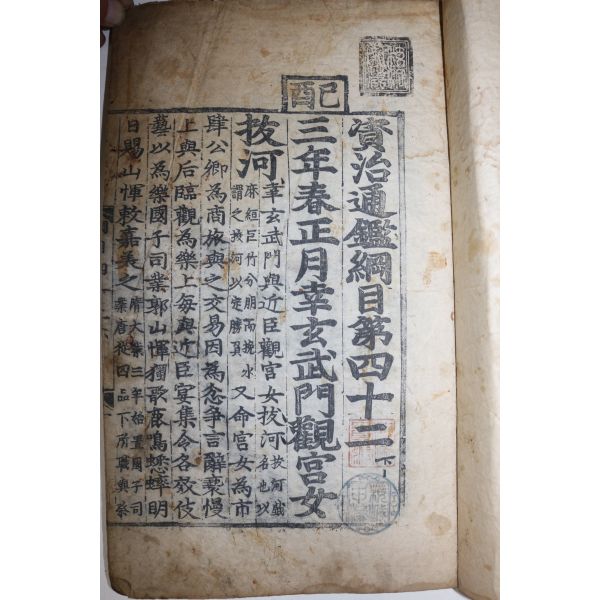 酉己
資治通鑑綱目第四十二下
三年春正月幸玄武門觀宮女
拔河
幸玄武門與近臣觀宮女拔河拔河戲名也以
麻絙巨竹分朋而挽水謂之拔河以定勝負又命宮女為市
肆公卿為商旅與之交易因為忿爭言辭褻慢
上與后臨觀為樂上每與近臣宴集令各效伎
藝以為樂國子司業郭山惲獨歌鹿鳴蟋蟀明
日賜山惲敕嘉美之